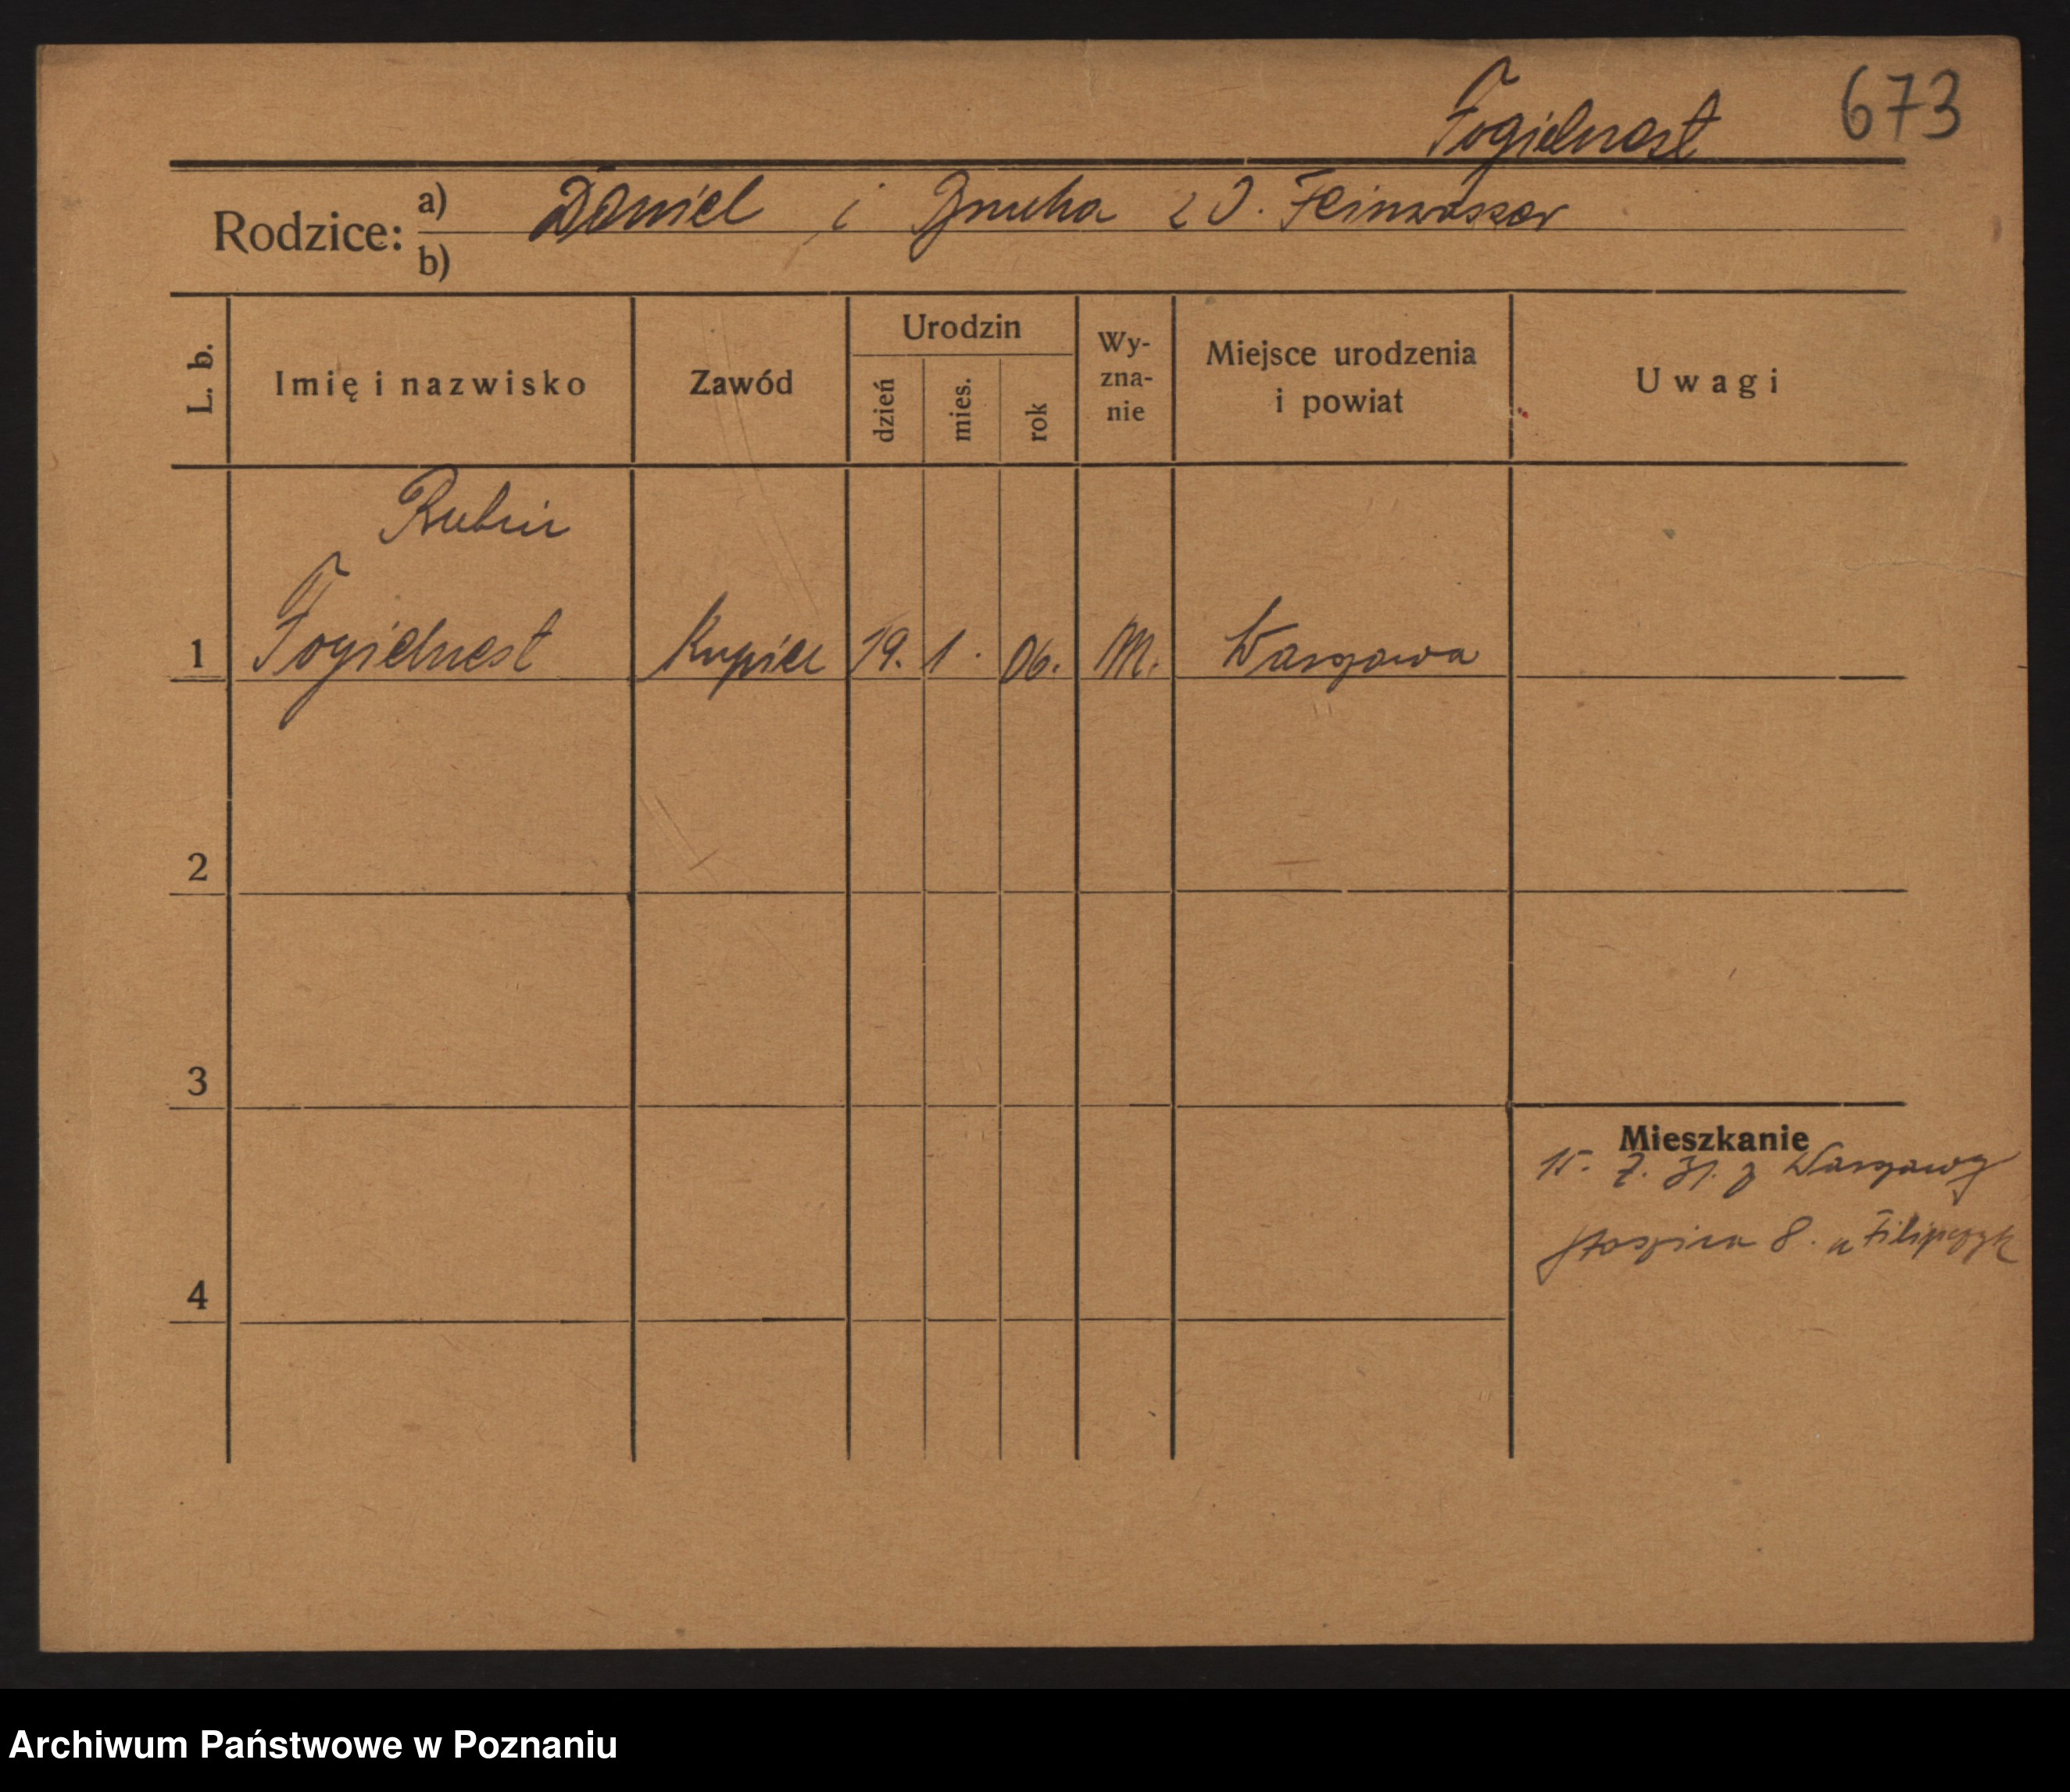 Fogielnest 673
Rodzice: a) Daniel i Bruha z D. Feinwasser
b)
L. b. Imię i nazwisko Zawód Urodzin dzień mies. rok Wy-zna-nie Miejsce urodzenia i powiat Uwagi
Rubin
1 Fogielnest Kupiec 19. 1. 06. M. Warszawa
2
3
Mieszkanie
15. 7. 31. z Warszawy
8. u Filipczyk
4
Archiwum Państwowe w Poznaniu